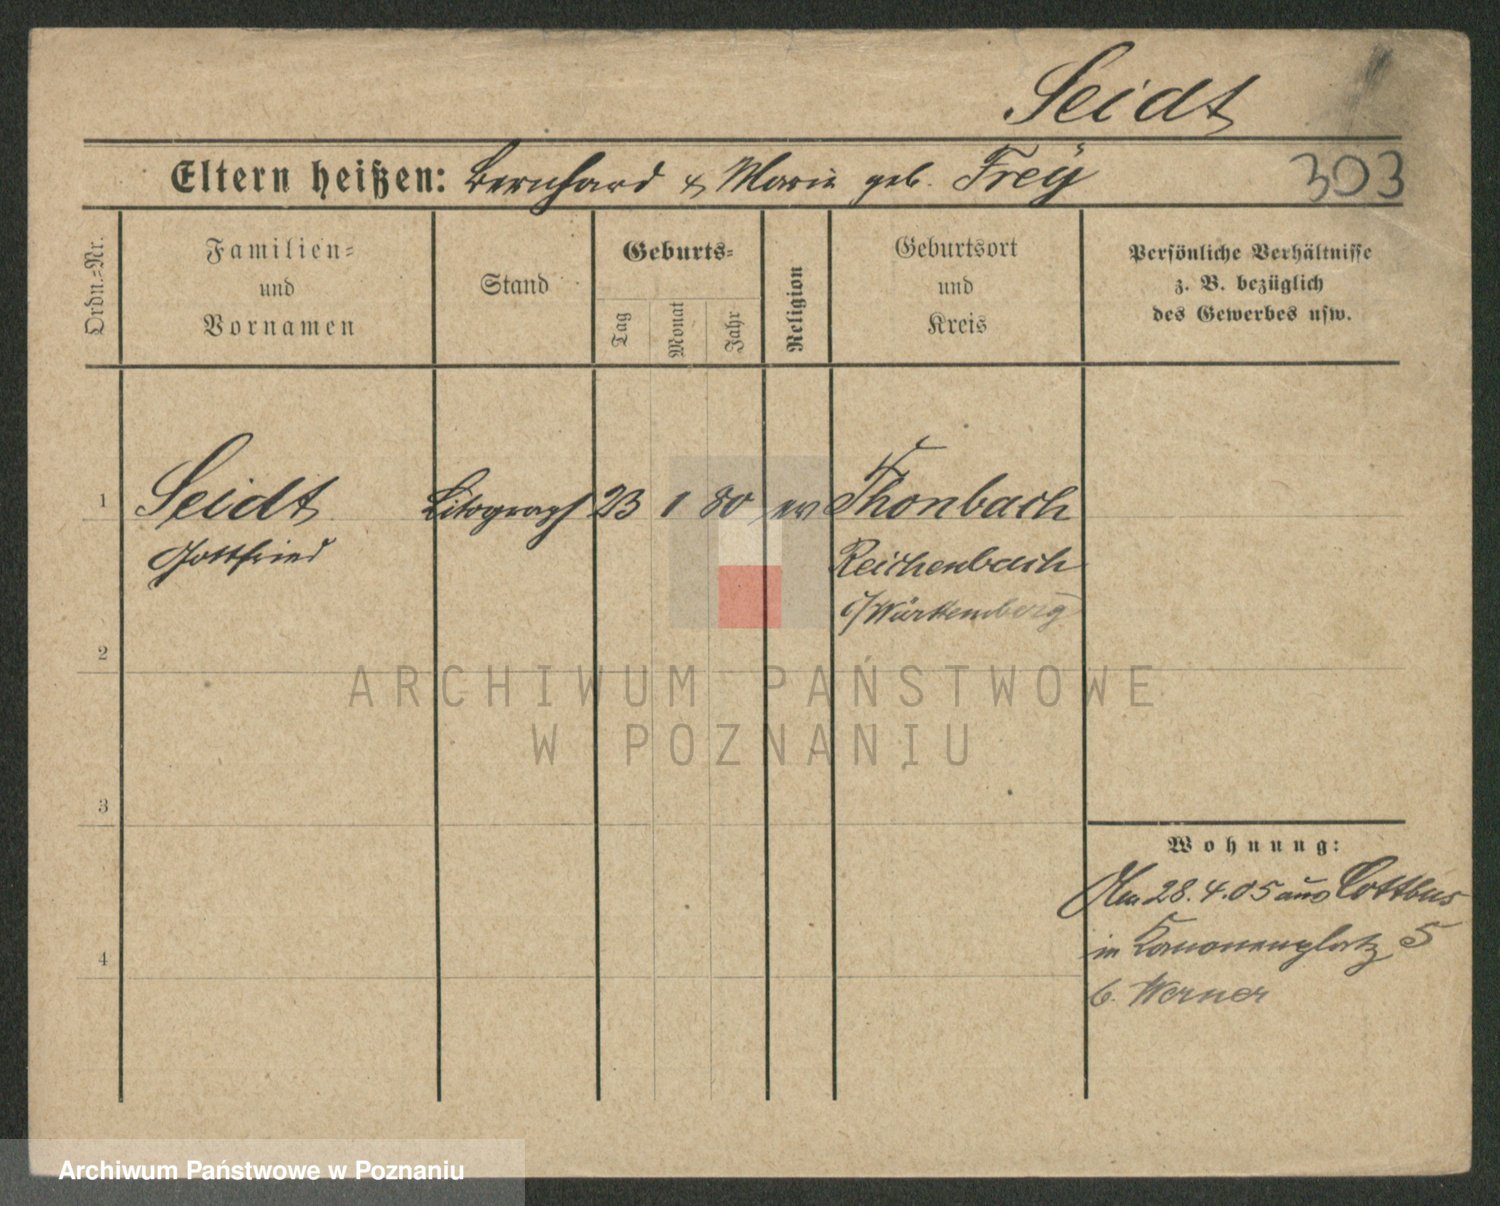 Seidt
Eltern heißen: Bernhard & Marie geb. Frey
303
Ordn.-Nr.
Familien-
und
Vornamen
Stand
Geburts-
Tag
Monat
Jahr
Religion
Geburtsort
und
Kreis
Persönliche Verhältnisse
z. B. bezüglich
des Gewerbes usw.
1 Seidt Litograph 23 1 80 ev Thonbach
Gottfried Reichenbach
i/Württemberg
2
ARCHIWUM PAŃSTWOWE
W POZNANIU
3
Wohnung:
28.4.05 aus Cottbus
in Kanonenplatz 5
4
b. Werner
Archiwum Państwowe w Poznaniu